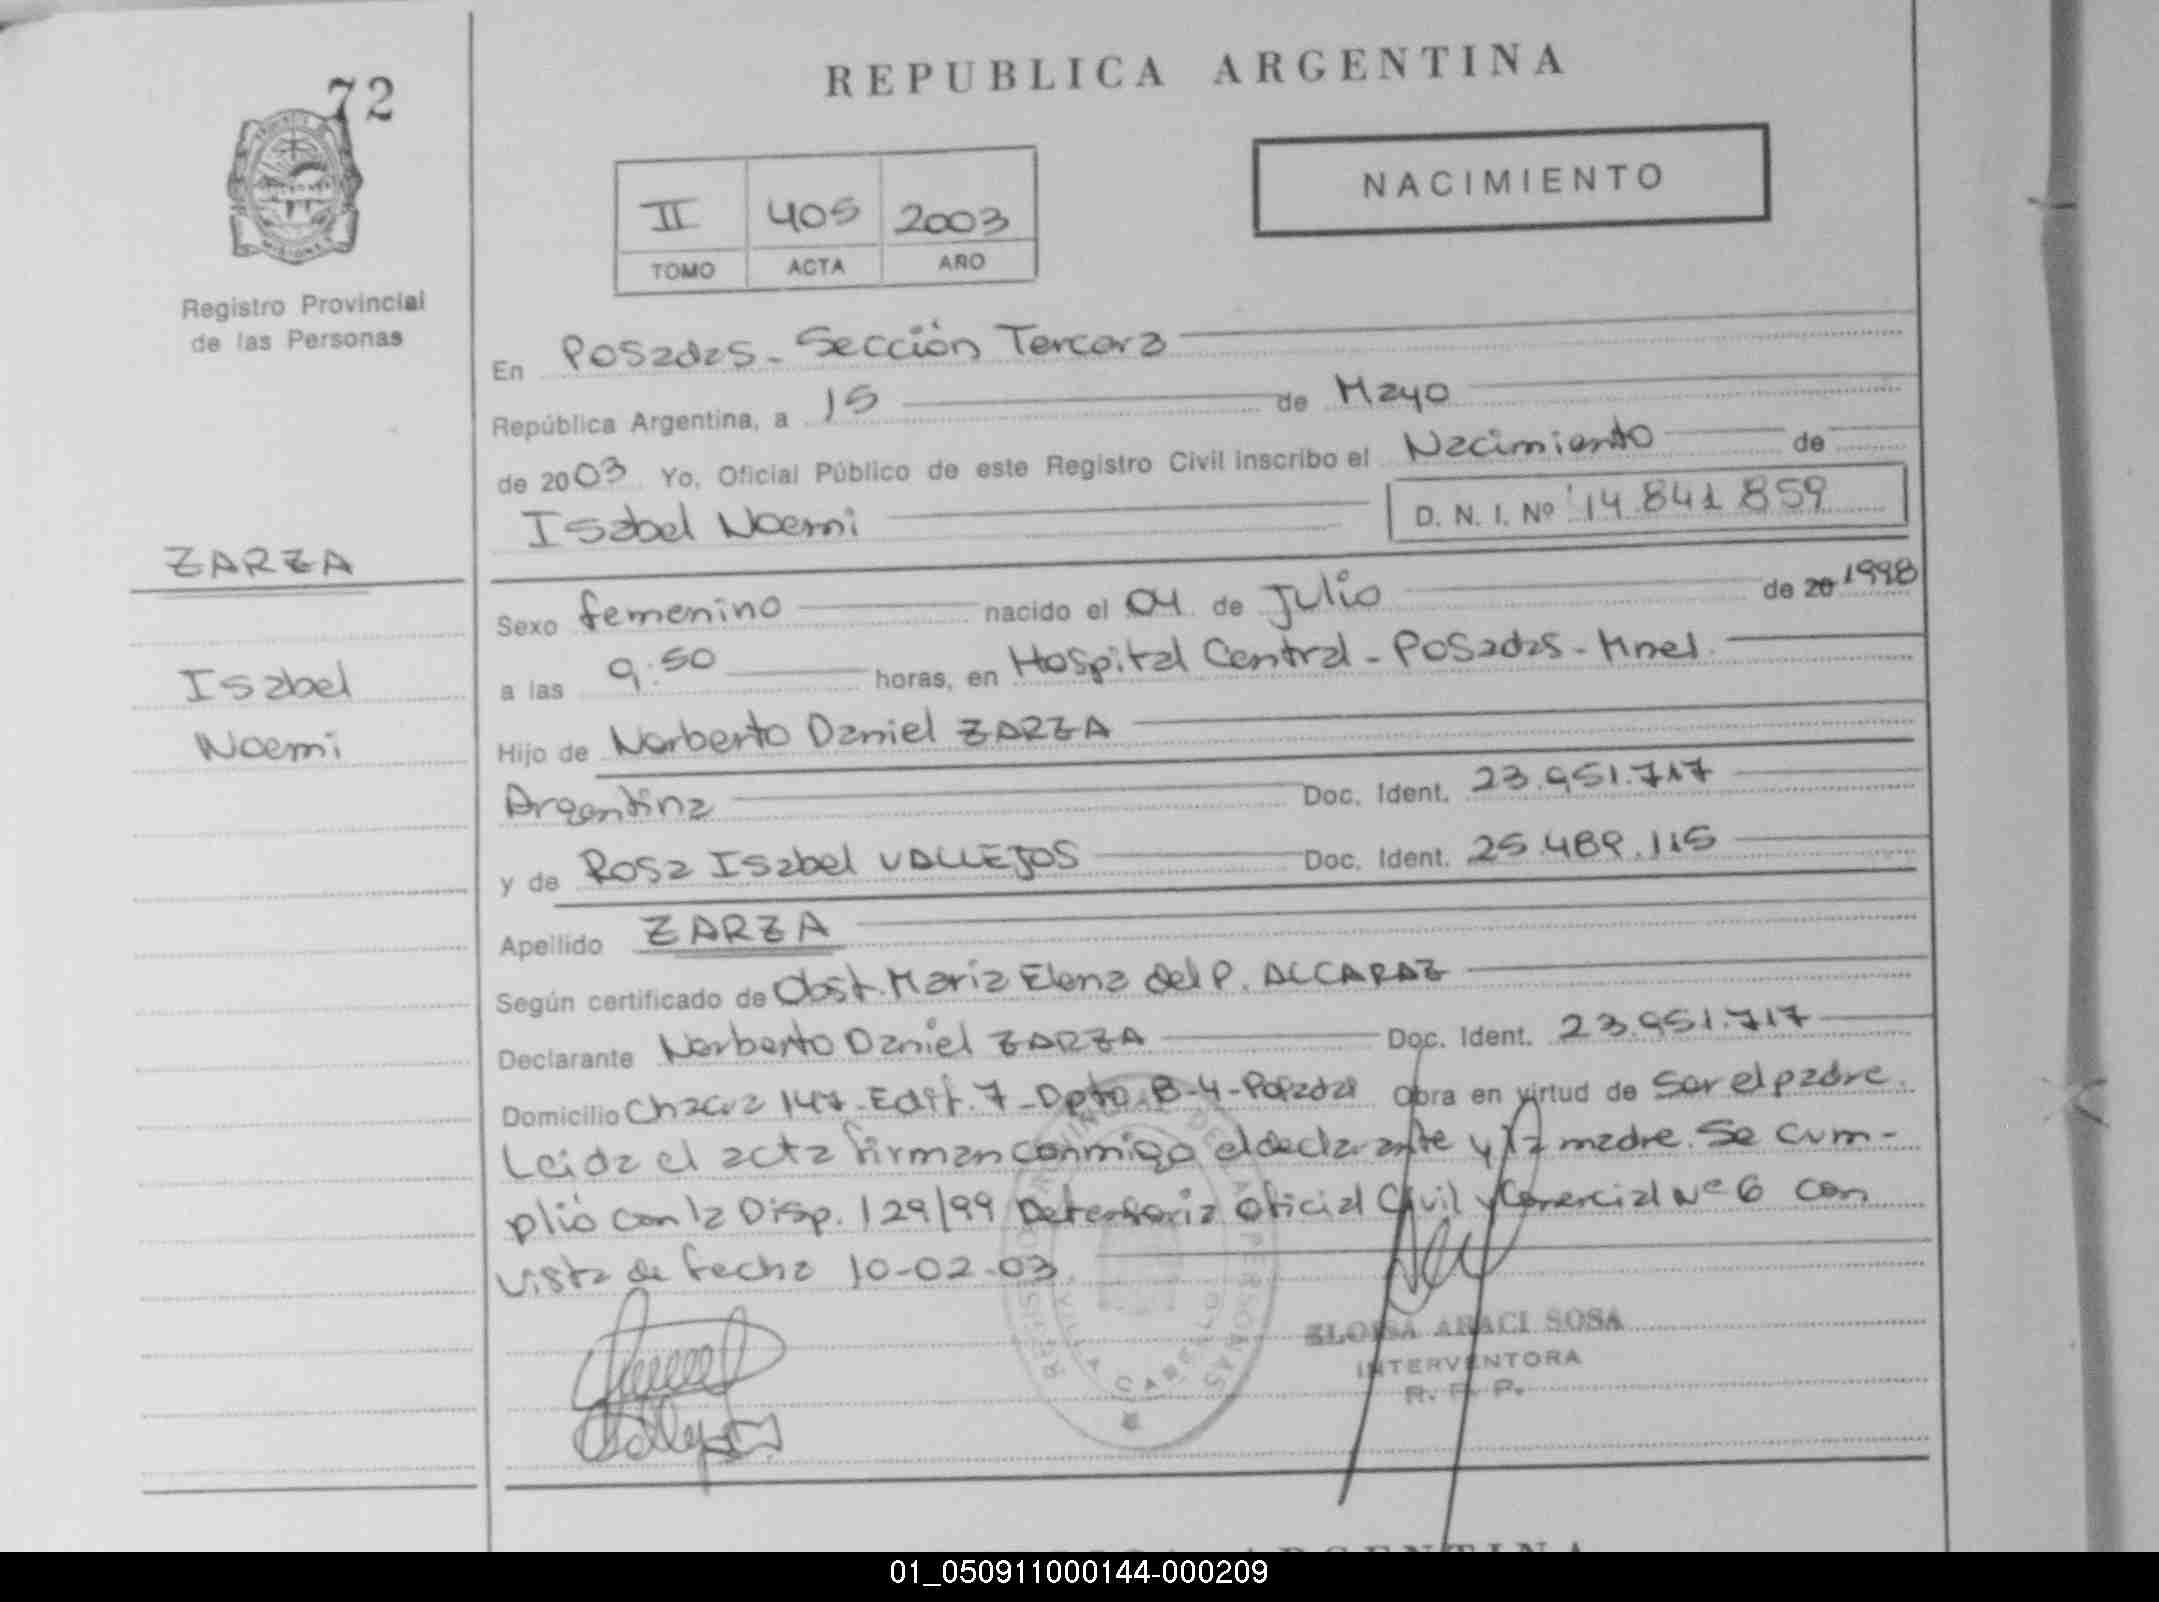 REPUBLICA ARGENTINA
72
NACIMIENTO
II 405 2003
TOMO ACTA AÑO
Registro Provincial
de las Personas
En Posadas - Sección Tercera
República Argentina, a 15 de Mayo
de 2003 Yo, Oficial Público de este Registro Civil inscribo el Nacimiento de
Isabel Noemi D. N. I. Nº 14.841.859
ZARZA
Sexo femenino nacido el 04 de Julio de 20 1998
Isabel
a las 9:50 horas, en Hospital Central - Posadas - Mnes.
Noemi
Hijo de Norberto Daniel ZARZA
Argentina Doc. Ident. 23.951.717
y de Rosa Isabel VALLEJOS Doc. Ident. 25.489.115
Apellido ZARZA
Según certificado de Obst. Maria Elena del P. ALCARAZ
Declarante Norberto Daniel ZARZA Doc. Ident. 23.951.717
Domicilio Chacra 147 - Edif. 7 - Dpto B-4 - Posadas Obra en virtud de Ser el padre.
Leida el acta firman conmigo el declarante y la madre. Se cum-
plió con la Disp. 129/99 Defensoria Oficial Civil y Comercial Nº 6 con
vista de fecha 10-02-03
ELOISA ARACI SOSA
INTERVENTORA
R. P. P.
REPUBLICA ARGENTINA
01_050911000144-000209